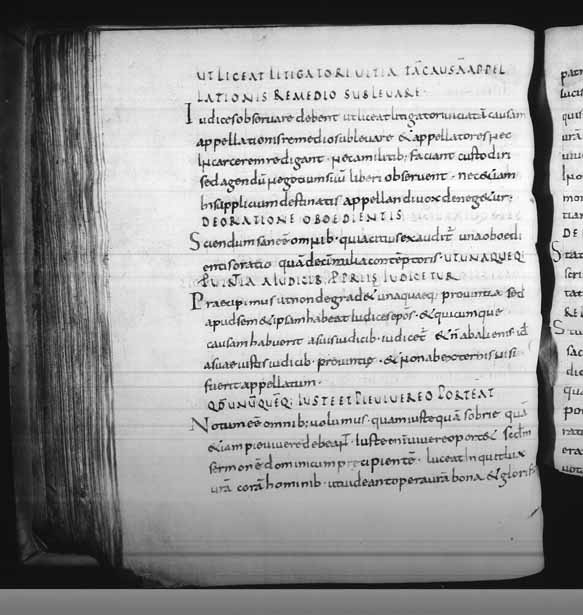 UT LICEAT LITIGATORI UITIATĀ CAUSĀ APPEL
LATIONIS REMEDIO SUBLEUARE·
Iudices obseruare debent ut liceat litigatori uiciatā causam
appellationis remedio subleuare & appellatores nec
In carcerem redigant · nec a militib; faciant custodiri
sed agendū negotium suū liberi obseruent · nec &iam
In supplicium destinatis appellandi uox deneg&ur;
DE ORATIONE OBOEDIENTIS
Sciendum san ē omnib· quia citius exaudit̄ una oboedi
entis oratio quā decē milia conteptoris· UT UNAQUEQ;
PUINTIA A IUDICIB; P̄PRIIS IUDICETUR
Praecipimus ut non degrad& unaquaeq; prouintia sed
apud sem&ipsam habeat Iudices epōs· & quicumque
causam habuerit a suis iudicib· iudicet̄ & n̄ ab alienis id
a suae iustis iudicib· prouintię · & non ab externis nisi
fuerit appellatum·
QD̄ UNŪQUĒQ; IUSTE ET PIE UIUERE OPORTEAT
Notum eē omnib; uolumus· quam iuste quā sobrie quā
&iam pie uiuere debeaT̄· Iuste enī uiuere oport& secdm̄
sermonē dominicum precipientē· luceat In quid lux
urā corā hominib· ut uideant opera urā bona & glorific